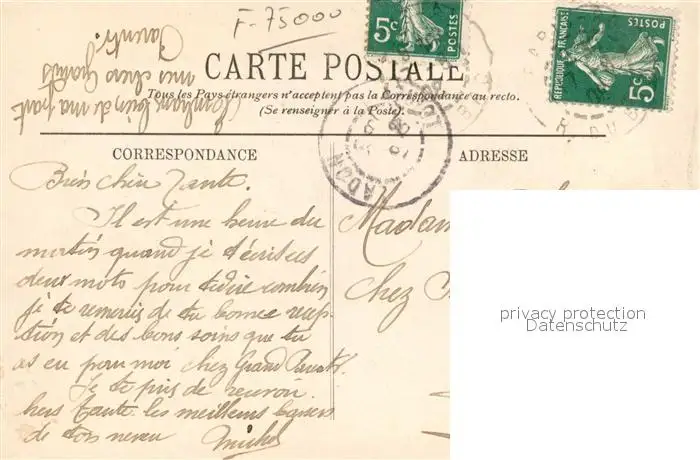 F-75000
5c
POSTES
REPUBLIQUE FRANÇAISE
POSTES
5c
CARTE POSTALE
Tous les Pays étrangers n'acceptent pas la Correspondance au recto.
(Se renseigner à la Poste).
bien de ma part
mes chers Grands
Parents.
CORRESPONDANCE
ADRESSE
Bien chère Tante.
Il est une heure du
matin quand je t'écris ces
deux mots pour te dire combien
je te remercie de ta bonne récep
tion et des bons soins que tu
as eu pour moi chez Grand Parents.
Je te prie de recevoir
chère tante les meilleurs baisers
de ton neveu Michel
Madam
Chez
privacy protection
Datenschutz